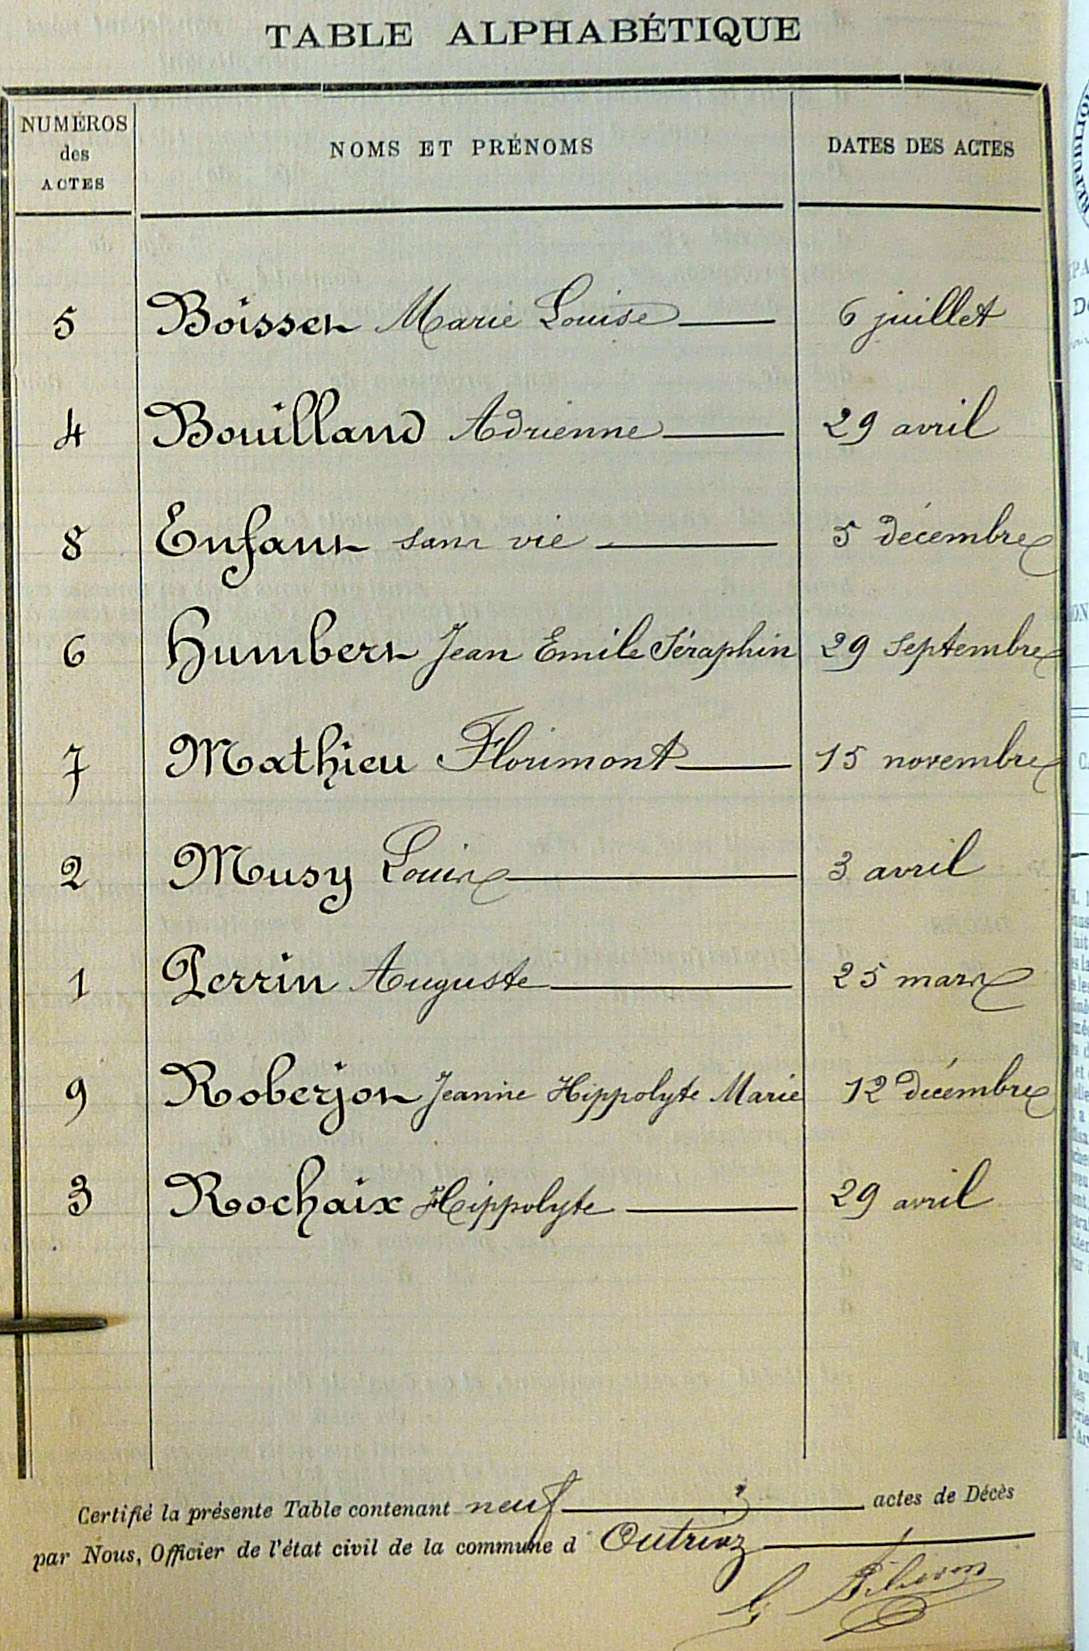 TABLE ALPHABÉTIQUE
NUMÉROS des ACTES NOMS ET PRÉNOMS DATES DES ACTES
5 Boisset Marie Louise 6 juillet
4 Bouilland Adrienne 29 avril
8 Enfant sans vie 5 décembre
6 Humbert Jean Emile Séraphin 29 septembre
7 Mathieu Florimont 15 novembre
2 Musy Louis 3 avril
1 Perrin Auguste 25 mars
9 Roberjot Jeanne Hippolyte Marie 12 décembre
3 Rochaix Hippolyte 29 avril
Certifié la présente Table contenant neuf actes de Décès
par Nous, Officier de l'état civil de la commune d Outriaz